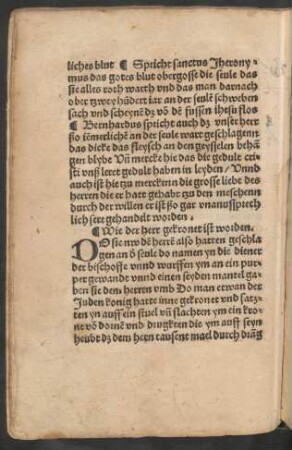 liches blut ¶ Spricht sanctus Jherony⸗
mus das gotes blut obergosse die seule das
sie alles roth warth vnd das man darnach
ober tzwey hūdert iar an der seulē schweben
sach vnd scheynē dz vō dē fussen ihesu flos
¶ Bernhardus spricht auch dz vnser herr
ßo iēmerlichē an der seule wart geschlagenn
das dicke das fleysch an den geysselen behā⸗
gen blybe Vn̄ mercke hie das die gedult cri⸗
sti vnß leret gedult haben in leyden / Vnnd
auch ist hie tzu mercknn die grosse liebe des
herren die er hatt gehabt zu den meschenn
durch der willen er ist ßo gar vnaussprech
lich sere gehandelt worden.
¶ Wie der herr gekronet ist worden.
DO sie nw dē herrē also hatten geschla
gen an ō seule do namen yn die diener
der bischoffe vnnd wurffen ym an ein pur⸗
per gewandt vnnd einen seyden mantel ga⸗
ben sie den herren vmb Do man etwan der
Juden konig hatte inne gekronet vnd satz⸗
ten yn auff ein stuel vn̄ flachten ym ein kro⸗
ne vō dornē vnd drugkten die ym auff seyn
heubt dz dem hern tausent mael durch drāg